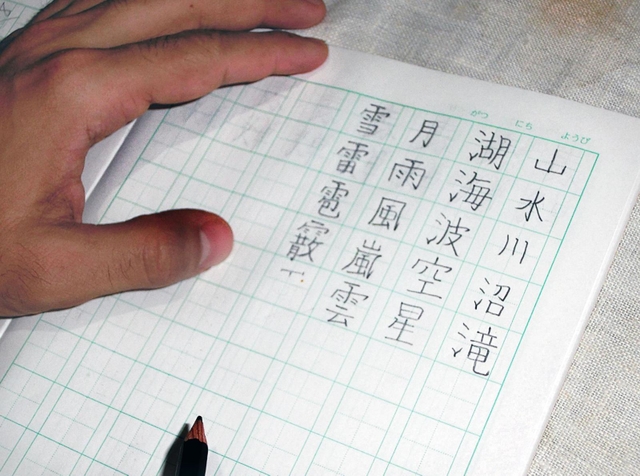 がつ にち ようび
山水川沼滝
湖海波空星
月雨風嵐雲
雪雷雹霰